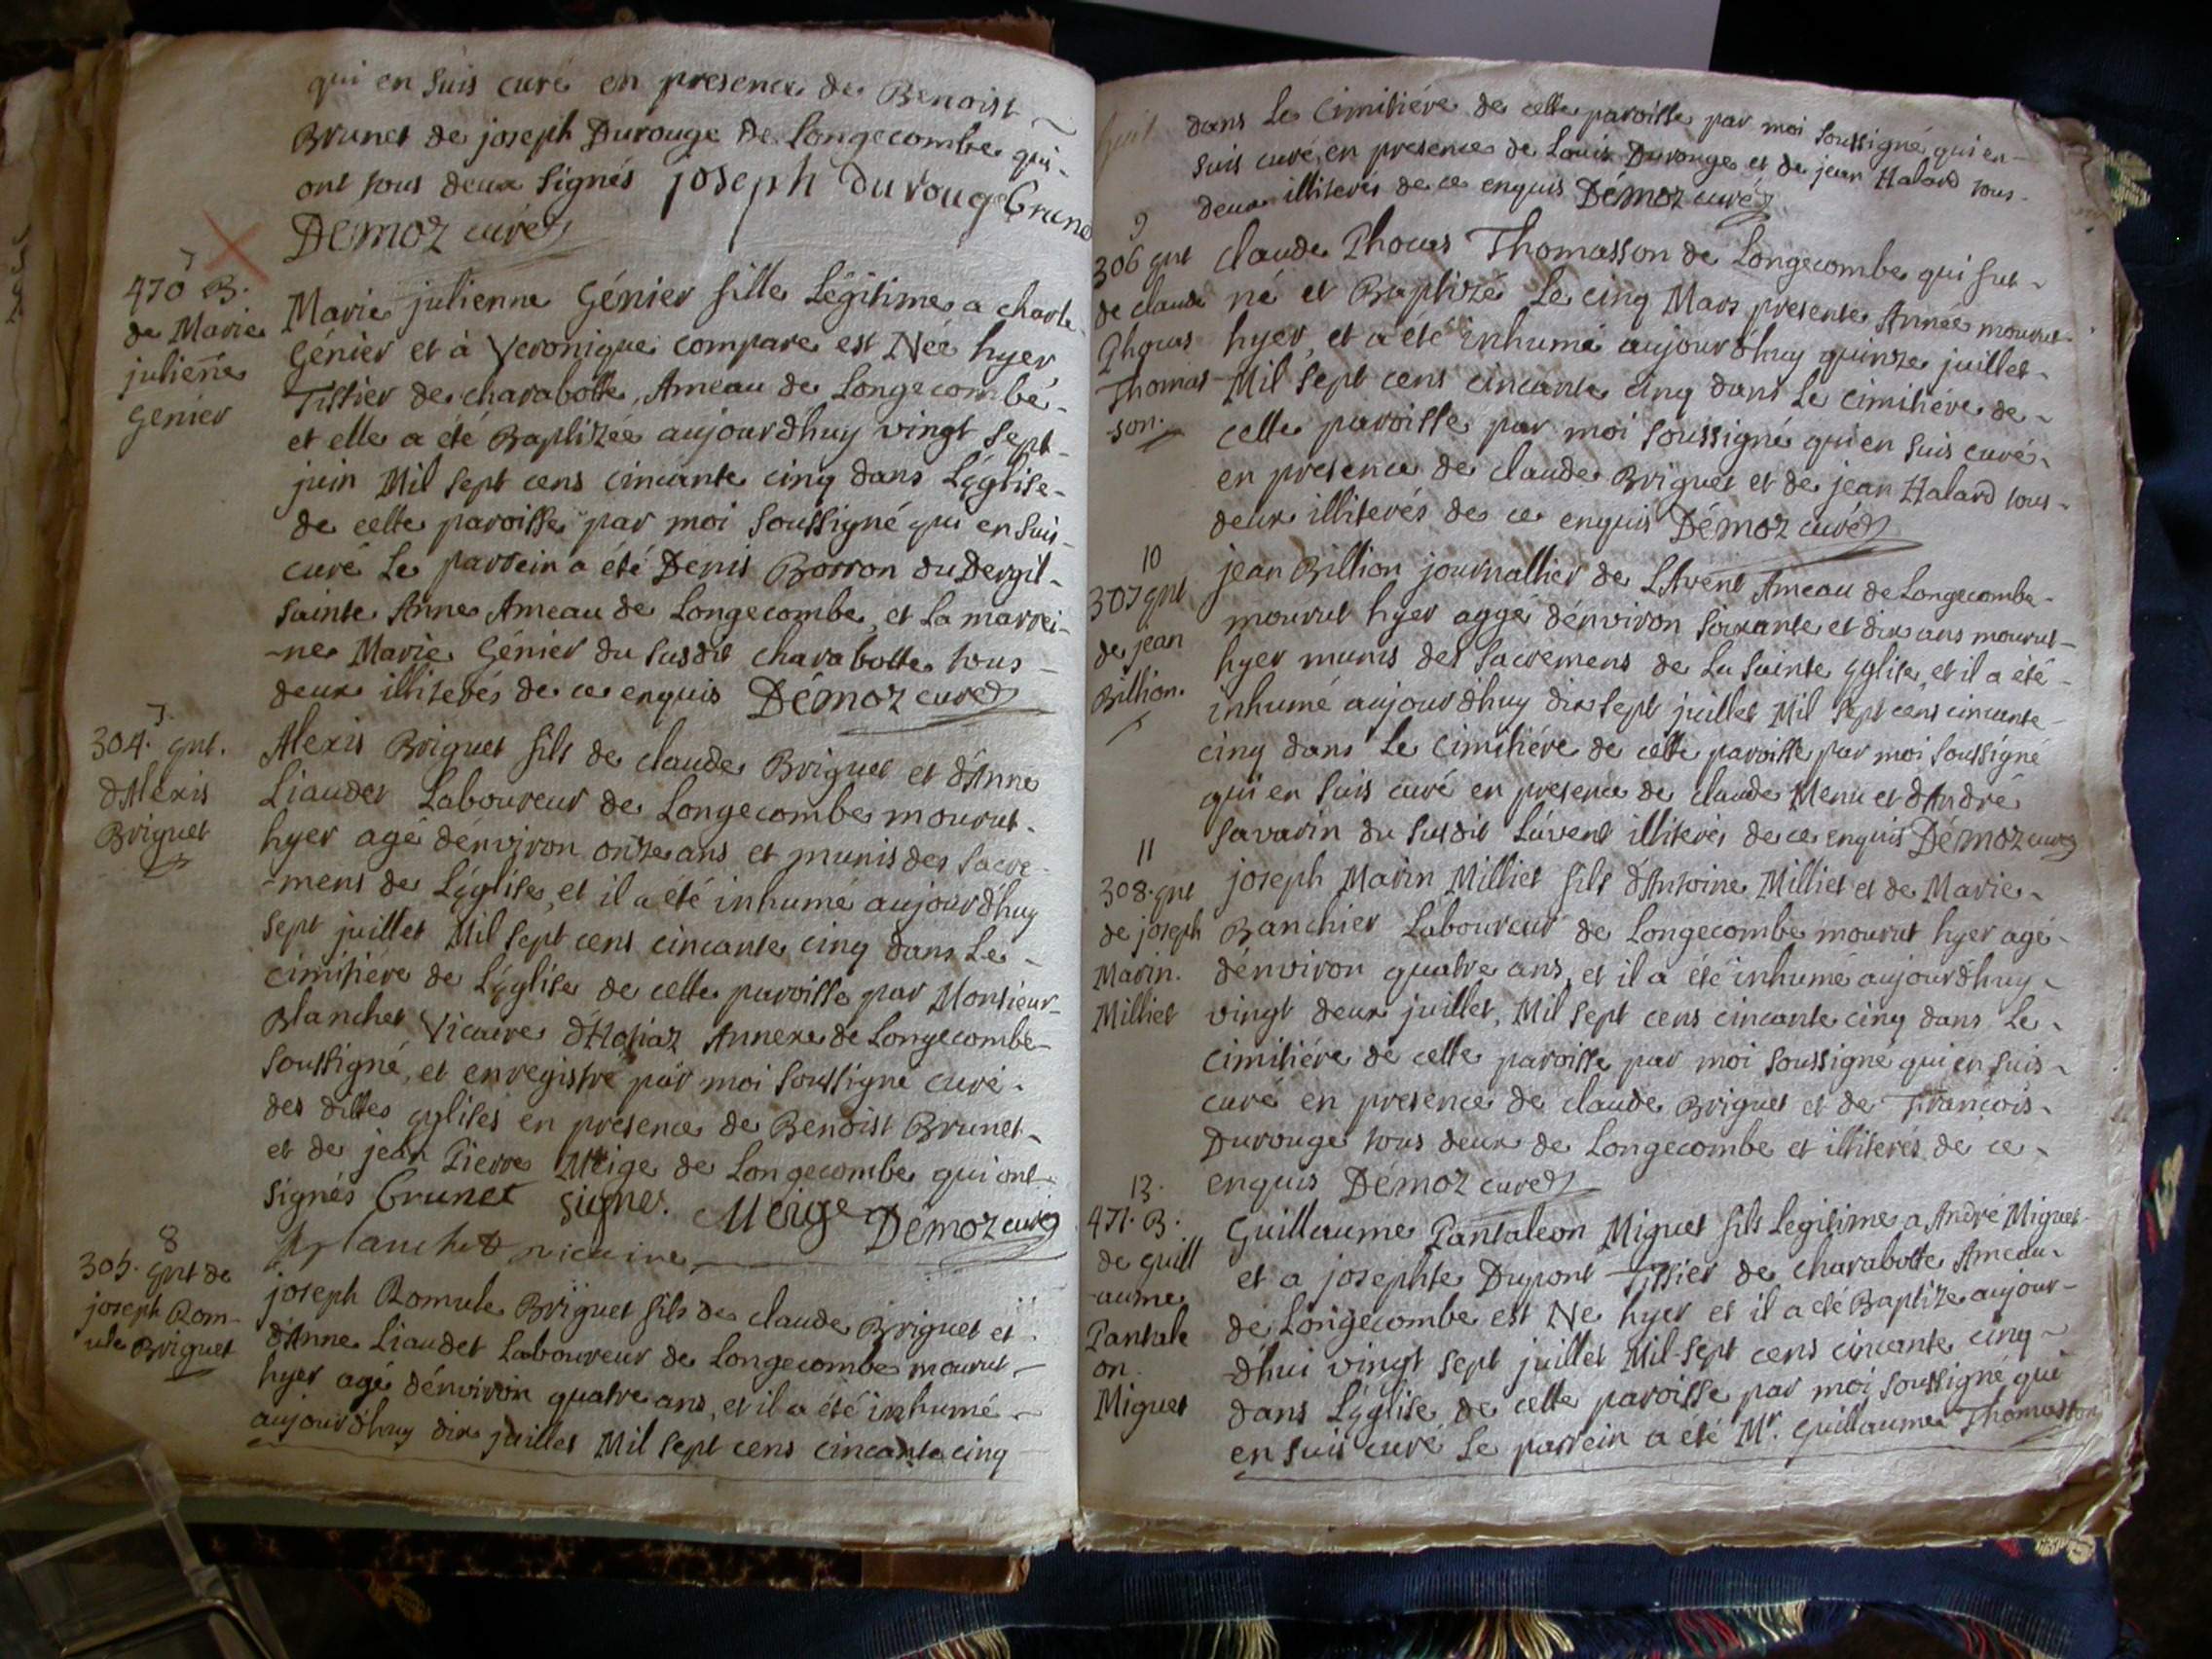 qui en suis curé en presence de Benoist
Brunet de joseph Durouge de Longecombe qui
ont tous deux signés joseph durouge brune
Démoz curé
7
470 B.
de Marie
julieñe
Genier
Marie julienne Génier fille Légitime a charle
Génier et à Veronique compare est Née hyer
Tissier de charabotte, Ameau de Longecombe
et elle a été Baptizée aujourd'huy vingt sept
juin Mil sept cens cincante cinq dans L'églite
de cette paroisse par moi soussigné qui en suis
curé Le parrein a été Denis Borron du Dergit
sainte Anne Ameau de Longecombe, et La marrei
-ne Marie Génier du susdit charabotte tous
deux illiterés de ce enquis Démoz curé
7.
304. gnt.
d'Alexis
Briguet
Alexis Briguet fils de claude Briguet et d'Anne
Liaudet Laboureur de Longecombe mourut
hyer agé d'environ onze ans et munis des sacre
-mens de L'église, et il a été inhumé aujourd'huy
sept juillet Mil sept cens cincante cinq dans Le
cimitiére de L'église de cette paroisse par Monsieur
Blanchet Vicaire d'Hotiaz Annexe de Longecombe
soussigné, et enregistré par moi soussigné curé
des dittes eglises en présence de Benoist Brunet
et de jean Pierre Meige de Longecombe qui ont
signés brunet signe. Meige Démoz curé
Blanchet vicaire
8
305. gnt de
joseph Rom-
ule Briguet
joseph Romule Briguet fils de claude Briguet et
d'Anne Liaudet Laboureur de Longecombe mourut
hyer agé d'environ quatre ans, et il a été inhumé
aujourd'huy dix juillet Mil sept cens cincante cinq
dans Le Cimitiére de cette paroisse par moi soussigné qui en
suis curé, en presence de Louis Durouge et de jean Halard tous
deux illiterés de ce enquis Démoz curé
9
306 gnt
de claude
Phocas
Thomas
-son.
claude Phocas Thomasson de Longecombe qui fut
né et Baptizé Le cinq Mars presente Année mourut
hyer, et a été inhumé aujourd'huy quinze juillet
Mil sept cens cincante cinq dans Le cimitiére de
cette paroisse par moi soussigné qui en suis curé
en presence de claude Briguet et de jean Halard tous
deux illiterés de ce enquis Démoz curé
10
307 gnt
de jean
Billion.
jean Billion journallier de L'Avent Ameau de Longecombe
mourut hyer aggé d'environ soixante et dix ans mourut
hyer munis des sacremens de La sainte Eglise, et il a été
inhumé aujourd'huy dix sept juillet Mil sept cens cincante
cinq dans Le cimitiére de cette paroisse par moi soussigné
qui en suis curé en presence de claude Menu et d'André
savarin du susdit Lavent illiterés de ce enquis Démoz curé
11
308. gnt
de joseph
Marin.
Milliet
joseph Marin Milliet fils d'Antoine Milliet et de Marie
Banchier Laboureur de Longecombe mourut hyer agé
d'environ quatre ans, et il a été inhumé aujourd'huy
vingt deux juillet, Mil sept cens cincante cinq dans Le
cimitiére de cette paroisse par moi soussigné qui en suis
curé en presence de claude Briguet et de François
Durouge tous deux de Longecombe et illiterés de ce
enquis Démoz curé
13.
471. B.
de guill
aume
Pantale
on.
Miguet
Guillaume Pantaleon Miguet fils Legitime a André Miguet
et a josephte Dupont Tissier de charabotte Ameau
de Longecombe est Né hyer et il a été Baptizé aujour
d'hui vingt sept juillet Mil-sept cens cincante cinq
dans L'église de cette paroisse par moi soussigné qui
en suis curé Le parrein a été Mr. guillaume Thomasson